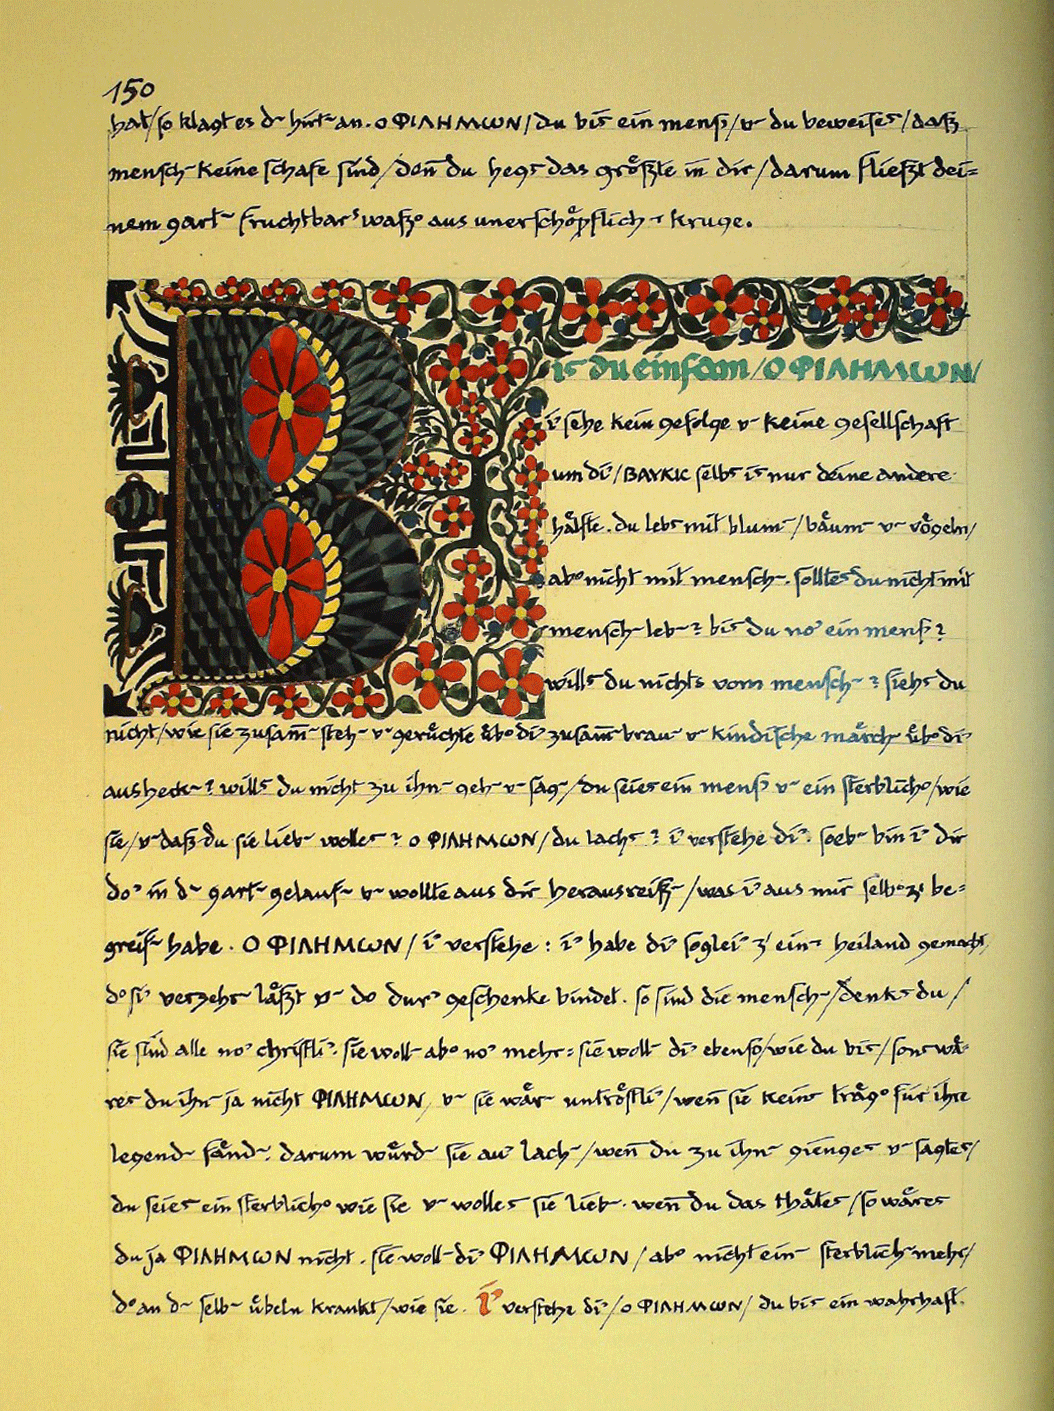 150
hat/so klagt es d~ hirt~ an. o ΦΙΛΗΜΩΝ/du bis̄ ein mens͛/v~ du beweises̄/daß
mensch~ keine schafe sind/den̄ du hegs̄ das größte in dir/darum fließt dei=
nem gart~ fruchtbar͛ waß͛ aus unerschöpflich~ kruge.
Bis̄ du einsam/O ΦΙΛΗΜΩΝ/
i͛ sehe kein gefolge v~ keine gesellschaft
um di͛/BAYKIC selbs̄ is̄ nur deine andere
hälfte. du lebs̄ mit blum~/bäum~ v~ vögeln/
ab͛ nicht mit mensch~. solltes̄ du nicht mit
mensch~ leb~? bis̄ du no͛ ein mens͛?
wills̄ du nichts vom mensch~? siehs̄ du
nicht/wie sie zusam̄~ steh~ v~ gerüchte üb͛ di͛ zusam̄~ brau~ v~ kindische märch~ üb͛ di͛
ausheck~? wills̄ du nicht zu ihn~ geh~ v~ sag~/du seies̄ ein mens͛ v~ ein sterblich͛/wie
sie/v~ daß du sie lieb~ wolles̄? o ΦΙΛΗΜΩΝ/du lachs̄? i͛ verstehe di͛. soeb~ bin i͛ dir
do͛ in d~ gart~ gelauf~ v~ wollte aus dir herausreiß~/was i͛ aus mir selb͛ z͛ be=
greif~ habe. O ΦΙΛΗΜΩΝ/i͛ verstehe: i͛ habe di͛ soglei͛ z͛ ein~ heiland gemacht/
d͛ si͛ verzehr~ läßt v~ d͛ dur͛ geschenke bindet. so sind die mensch~/denks̄ du/
sie sind alle no͛ christli͛. sie woll~ ab͛ no͛ mehr: sie woll~ di͛ ebenso/wie du bis̄/sons̄ wä=
res̄ du ihn~ ja nicht ΦΙΛΗΜΩΝ/ v~ sie wär~ untröstli͛/wen̄ sie kein~ träg͛ für ihre
legend~ fänd~. darum würd~ sie au͛ lach~/wen̄ du zu ihn~ gienges̄ v~ sagtes̄/
du seies̄ ein sterblich͛ wie sie v~ wolles̄ sie lieb~. wen̄ du das thätes̄/so wäres̄
du ja ΦΙΛΗΜΩΝ nicht. sie woll~ di͛ ΦΙΛΗΜΩΝ/ab͛ nicht ein~ sterblich~ mehr/
d͛ an d~ selb~ übeln krankt/wie sie. i͛ verstehe di͛/o ΦΙΛΗΜΩΝ/du bis̄ ein wahrhaft.